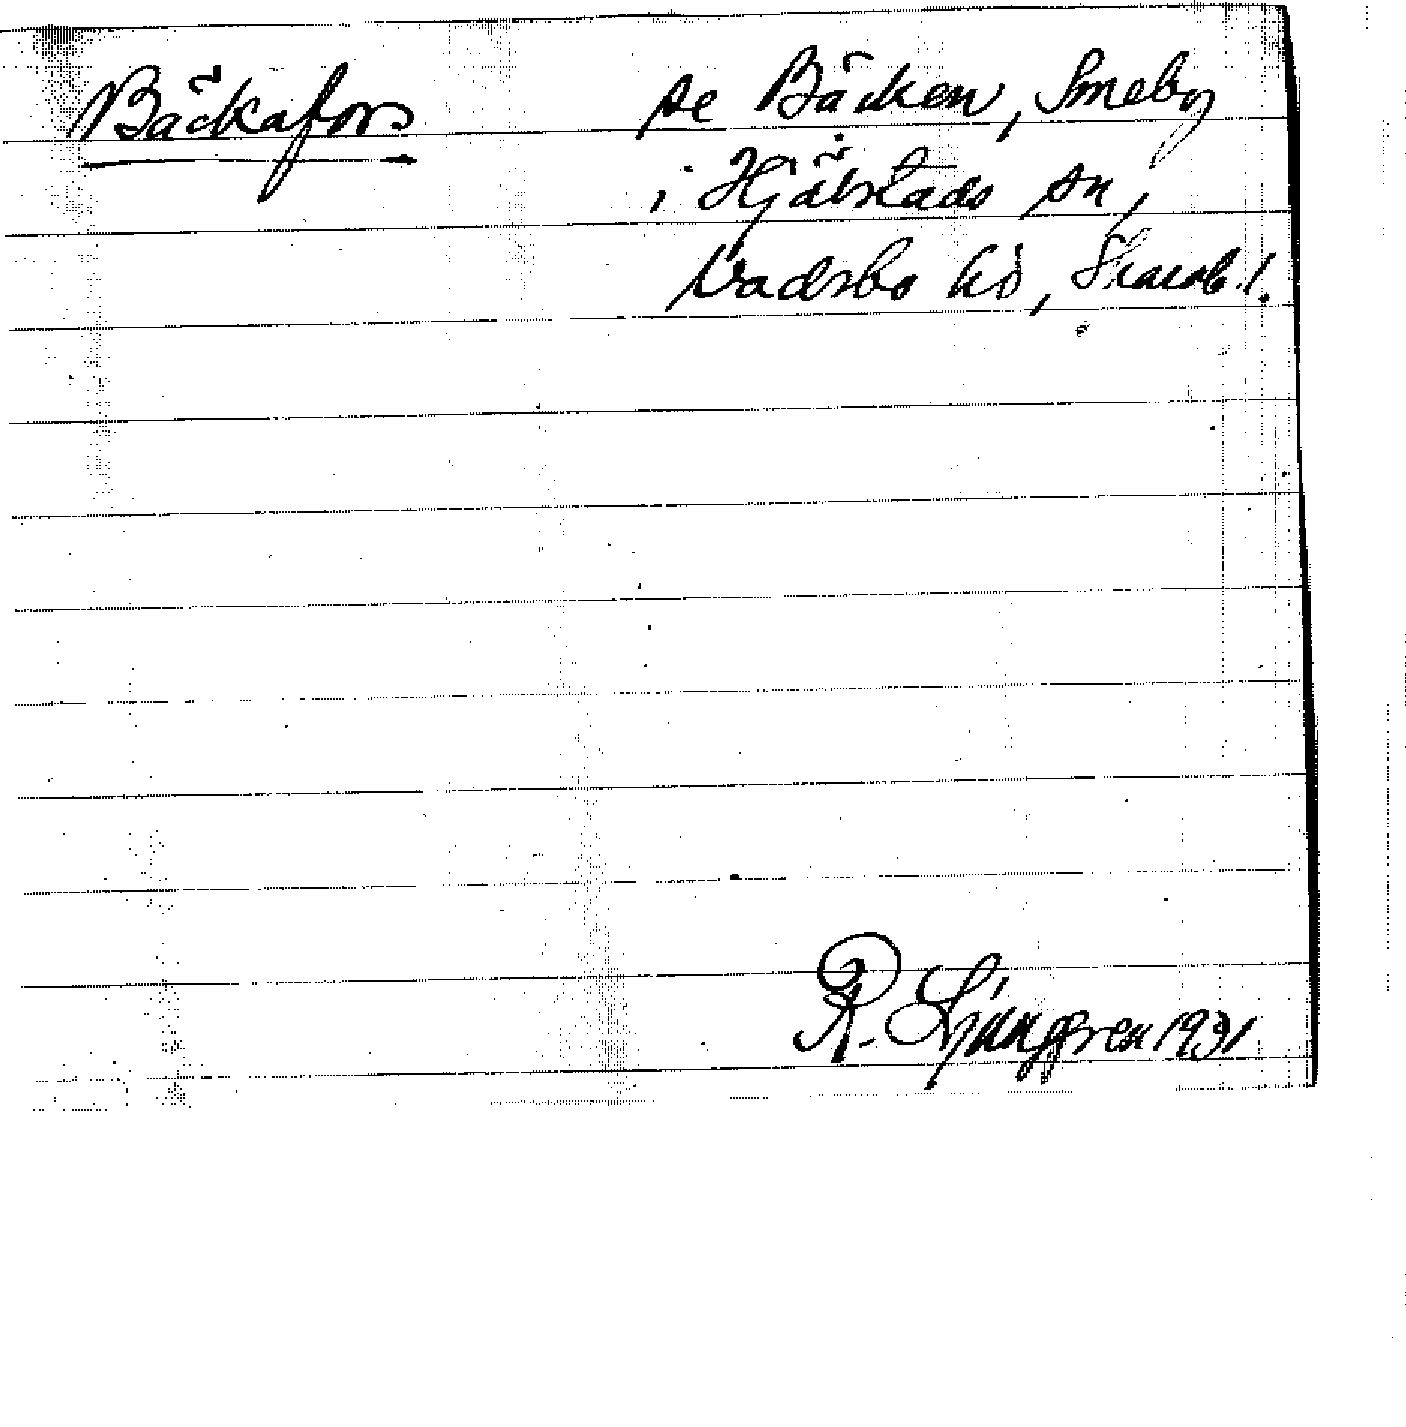 Bäckafors se Bäcken, Smeby
i Hjälstads sn,
Vadsbo hd, Skarab. l.
R. Ljunggren 1931